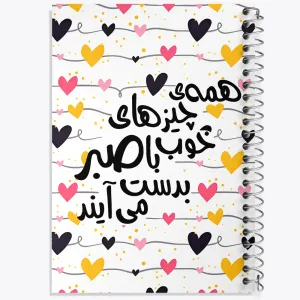 همه‌ی
چیزهای
خوب با صبر
بدست
می آیند